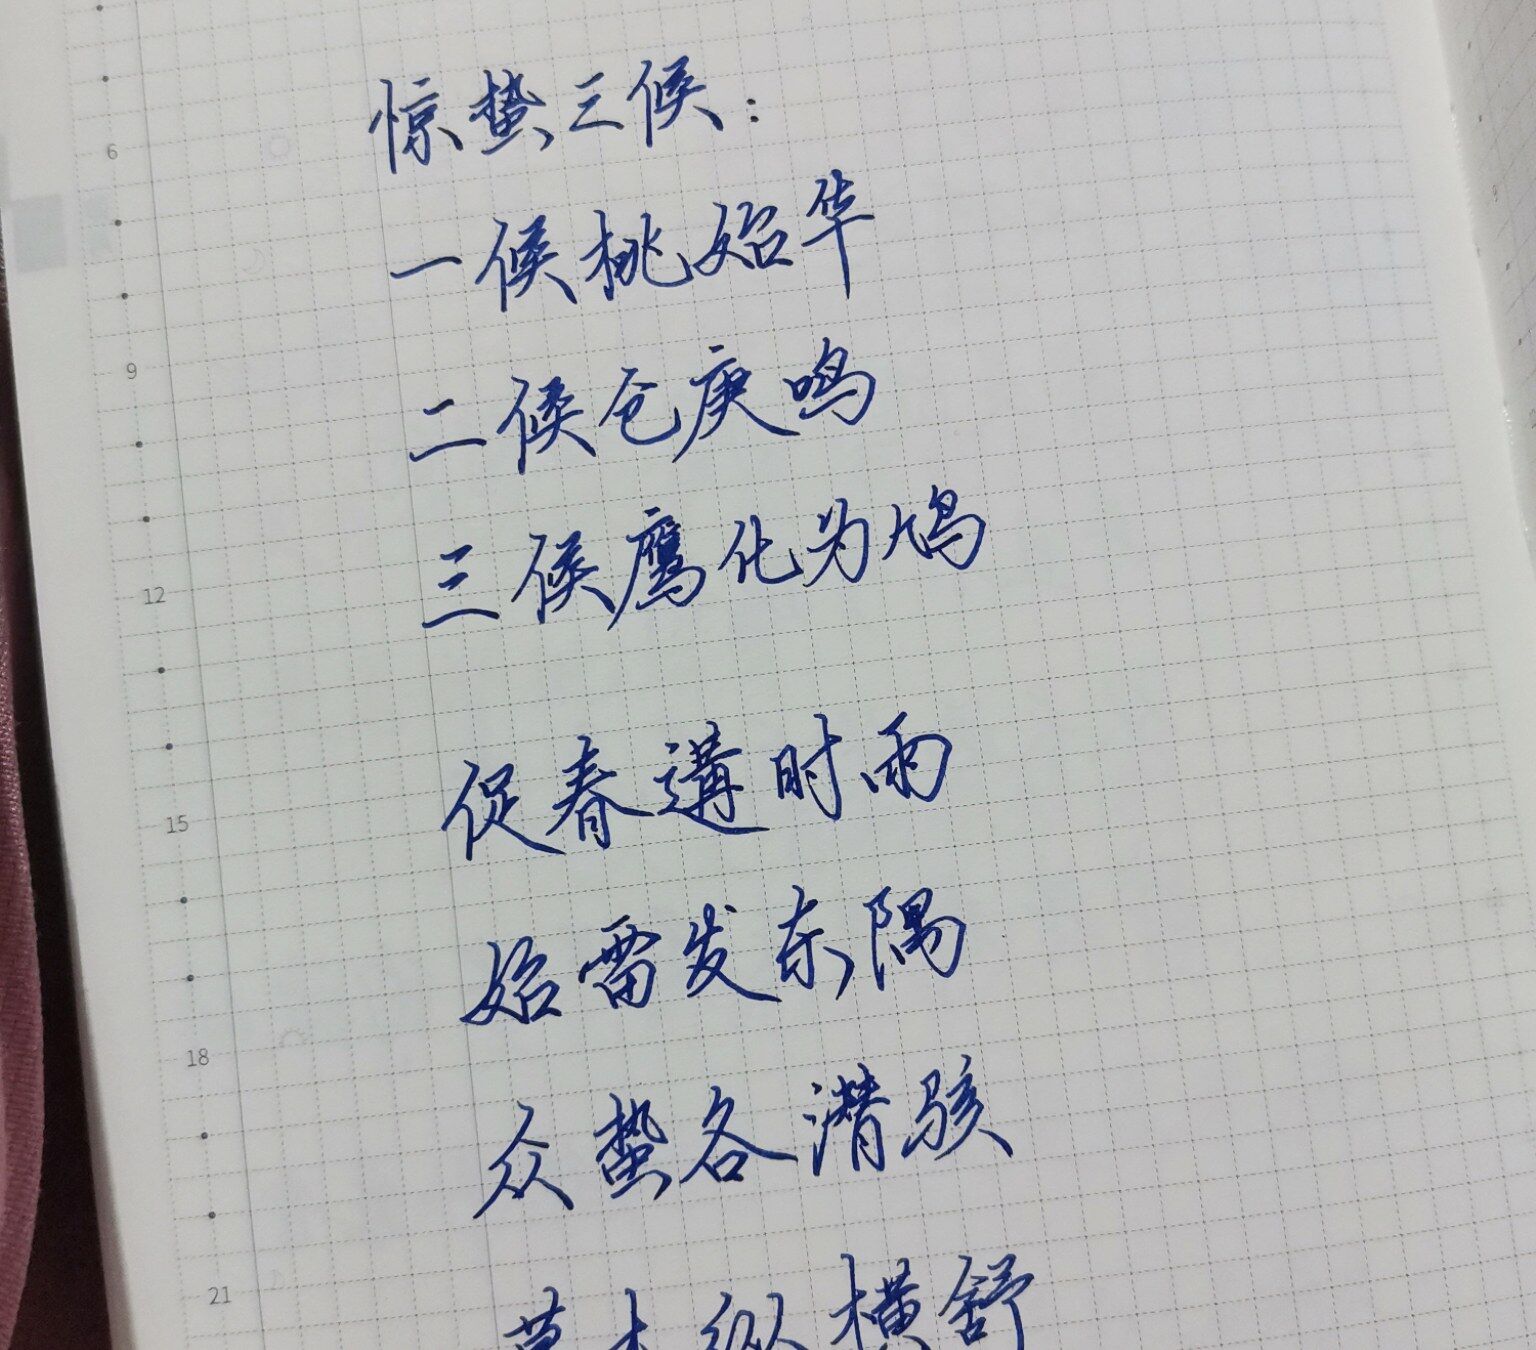 惊蛰三候：
一候桃始华
二候仓庚鸣
三候鹰化为鸠
促春遘时雨
始雷发东隅
众蛰各潜骇
草木纵横舒
6
9
12
15
18
21